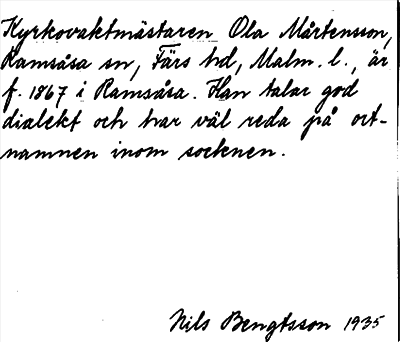 Kyrkovaktmästaren Ola Mårtensson,
Ramsåsa sn, Färs hd, Malm. l., är
f. 1867 i Ramsåsa. Han talar god
dialekt och har väl reda på ort-
namnen inom socknen.
Nils Bengtsson 1935